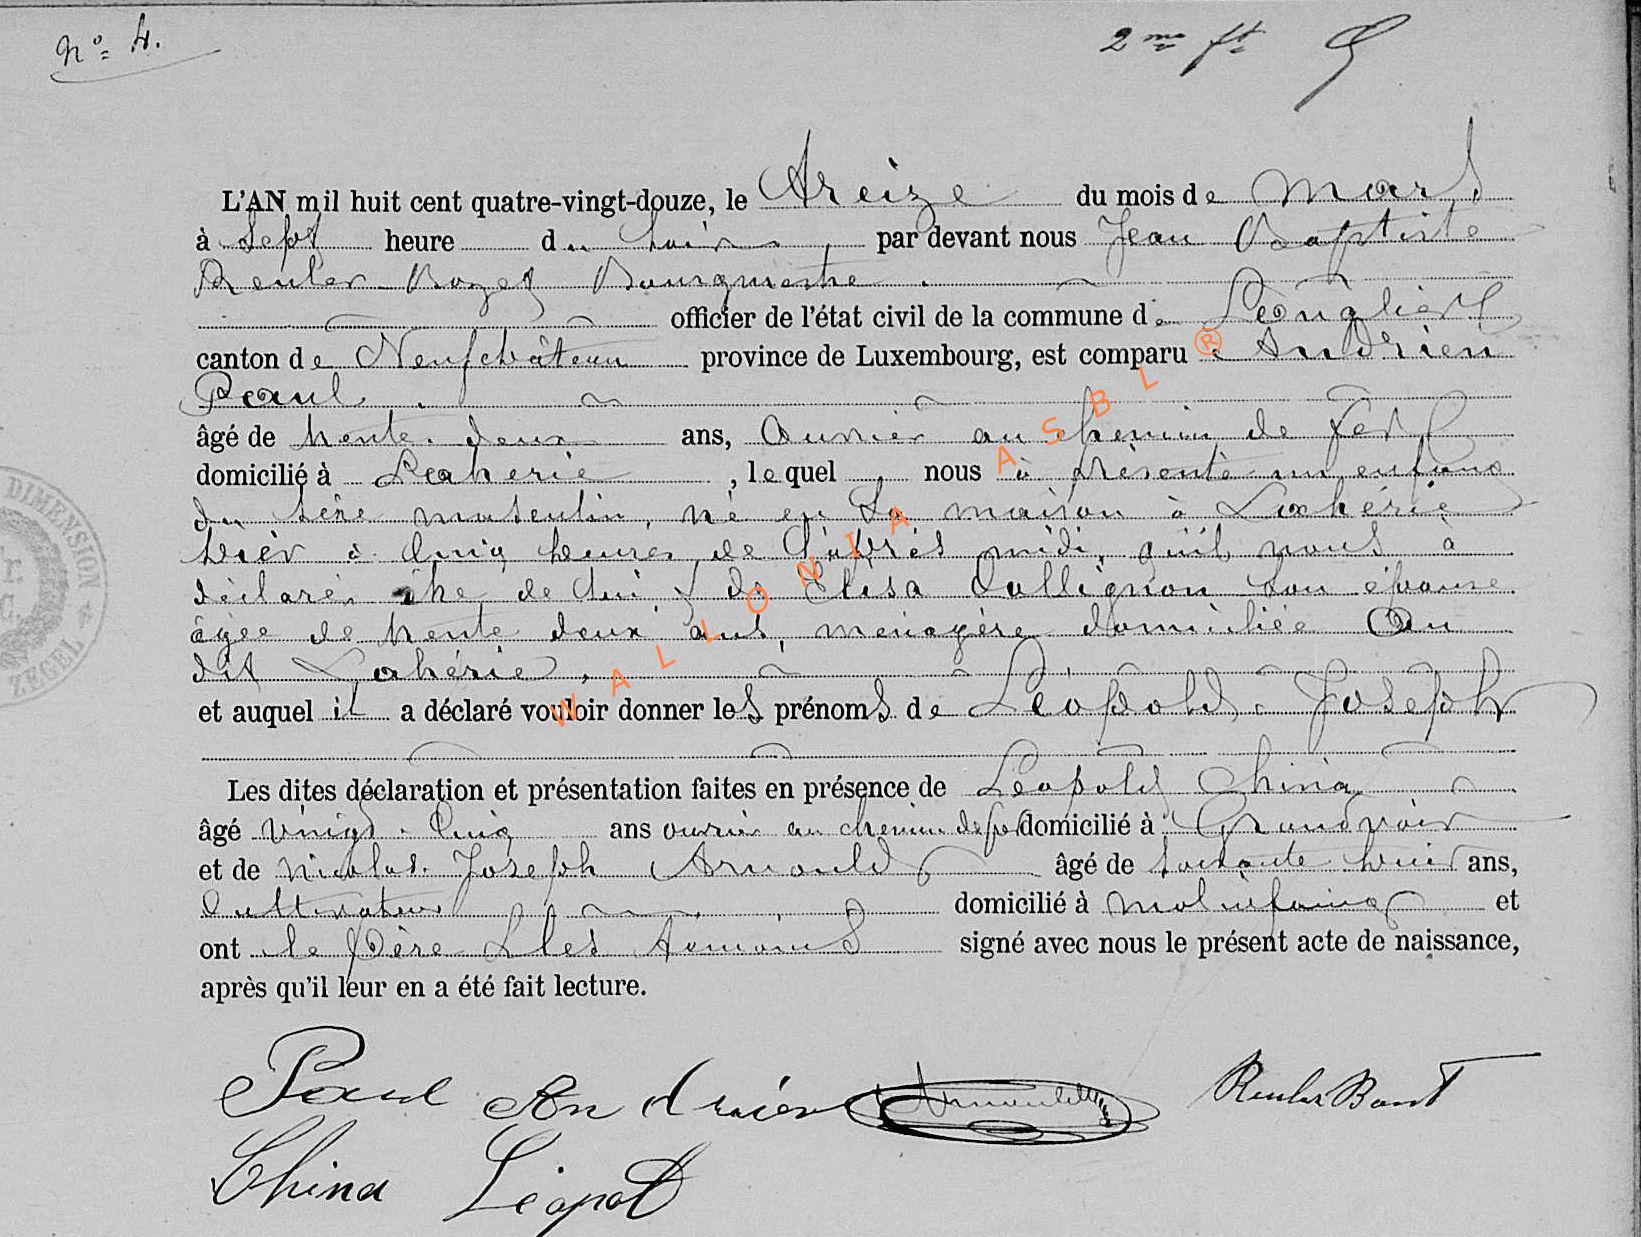 N° 4.
2me ft
L'AN mil huit cent quatre-vingt-douze, le treize du mois de Mars
à Sept heure du Soir, par devant nous Jean Baptiste
Reuler Bozet Bourgmestre.
officier de l'état civil de la commune de Longlier
canton de Neufchâteau province de Luxembourg, est comparu Andrien
Paul.
âgé de trente-deux ans, Ouvrier au chemin de Fer
domicilié à Laherie, lequel nous à présenté un enfant
du sexe masculin, né en Sa maison à Lahérie
hier à Cinq heures de l'après midi, qu'il nous à
déclaré être de lui & de Elisa Collignon Son épouse
âgée de trente deux ans, ménagère domiciliée Au
dit Lahérie,
et auquel il a déclaré vouloir donner les prénoms de Léopold Joseph
Les dites déclaration et présentation faites en présence de Léopold China
âgé vingt-Cinq ans ouvrier au chemin de fer domicilié à Grandvoir
et de Nicolas Joseph Arnould âgé de soixante huit ans,
Cultivateur domicilié à Molinfaing et
ont le Père & les témoins signé avec nous le présent acte de naissance,
après qu'il leur en a été fait lecture.
Paul Andrien Arnould Reuler Bozet
China Léopol
DIMENSION
ZEGEL
WALLONIA ASBL ®